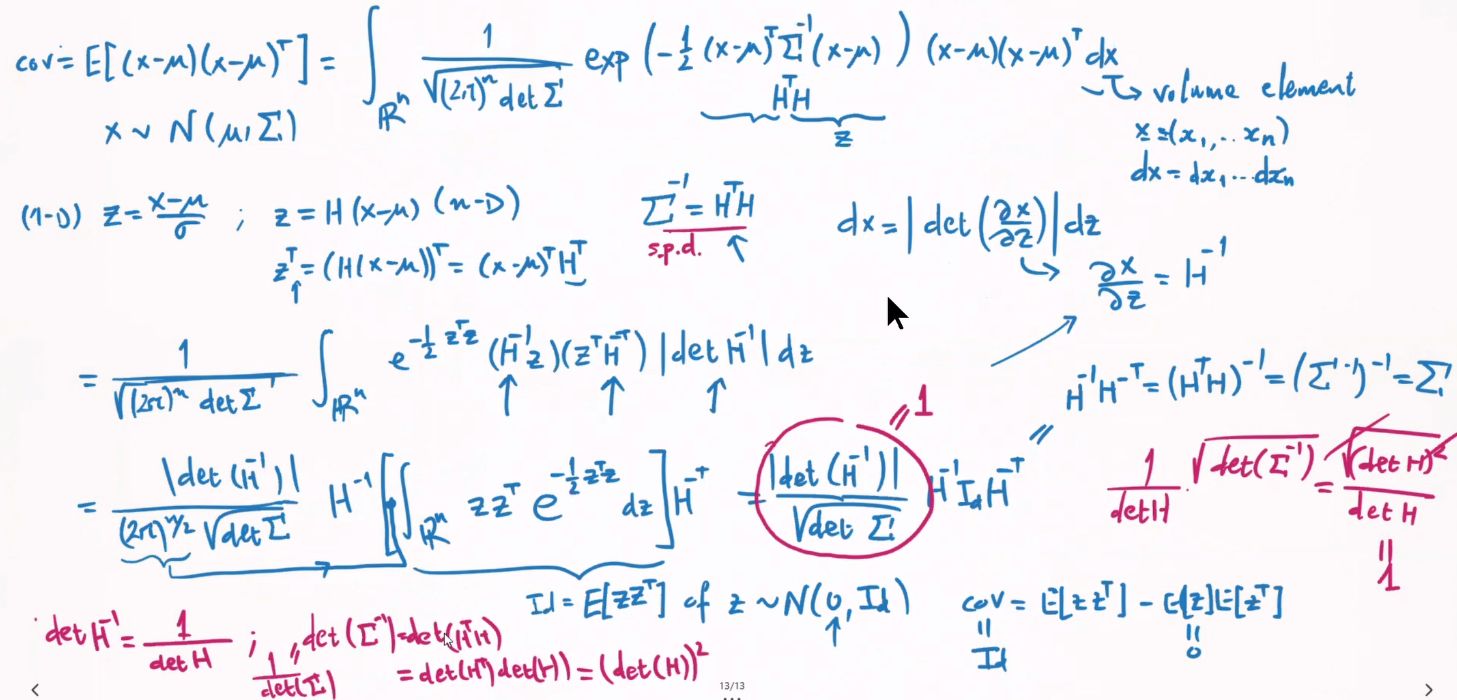 cov = E[(x-μ)(x-μ)^T] = ∫_{ℝ^n} 1/√((2π)^n det Σ) exp(-1/2 (x-μ)^T Σ^{-1} (x-μ)) (x-μ)(x-μ)^T dx
H^T H
z
↳ volume element
x ~ N(μ, Σ)
x = (x_1, .. x_n)
dx = dx_1 ... dx_n
(1-D) z = (x-μ)/σ ; z = H(x-μ) (n-D)
z^T = (H(x-μ))^T = (x-μ)^T H^T
↑
Σ^{-1} = H^T H
s.p.d. ↑
dx = |det(∂x/∂z)| dz
↳ ∂x/∂z = H^{-1}
= 1/√((2π)^n det Σ) ∫_{ℝ^n} e^{-1/2 z^T z} (H^{-1}z)(z^T H^{-T}) |det H^{-1}| dz
↑ ↑ ↑
H^{-1}H^{-T} = (H^T H)^{-1} = (Σ^{-1})^{-1} = Σ
= |det(H^{-1})|/((2π)^{n/2} √det Σ) H^{-1} [∫_{ℝ^n} z z^T e^{-1/2 z^T z} dz] H^{-T} = |det(H^{-1})|/√det Σ H^{-1} Id H^{-T}
= 1
=
1/det H · √det(Σ^{-1}) = √(det H)^2 / det H
= 1
Id = E[zz^T] of z ~ N(0, Id)
↑
cov = E[zz^T] - E[z]E[z^T]
= Id
= 0
det H^{-1} = 1/det H ; det(Σ^{-1}) = det(H^T H)
= 1/det(Σ)
= det(H^T) det(H) = (det(H))^2
13/13